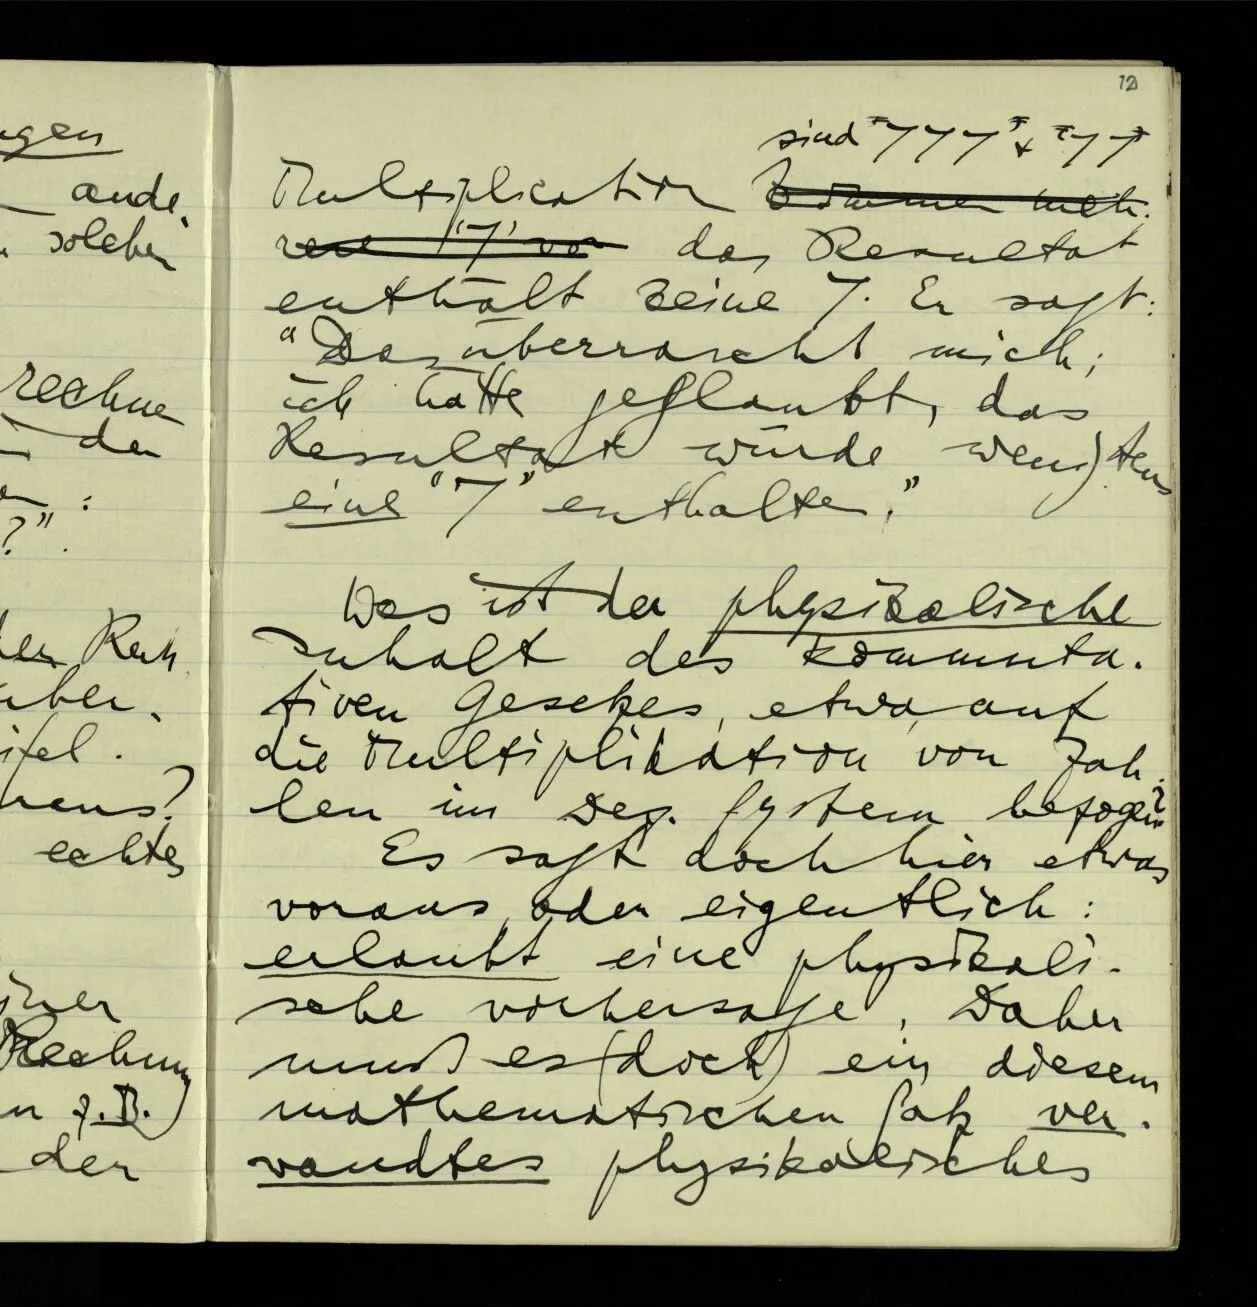 12
ngen
ande.
solcher
rechne
den
:
?".
den Rech
aber,
ifel.
mens?
echtes
einer
Rechnung
n z.B.)
der
sind "777" x "77"
Multiplication kommen meh-
rere '7' vor das Resultat
enthält keine 7. Er sagt:
"Das überrascht mich;
ich hätte geglaubt, das
Resultat würde wenigstens
eine "7" enthalten."
Was ist der physikalische
Inhalt des kommuta-
tiven Gesetzes, etwa auf
die Multiplikation von Zah-
len im Dez. System bezogen?
Es sagt doch hier etwas
voraus, oder eigentlich:
erlaubt eine physikali-
sche vorhersage. Daher
muß es (doch) ein diesem
mathematischen Satz ver-
wandtes physikalisches